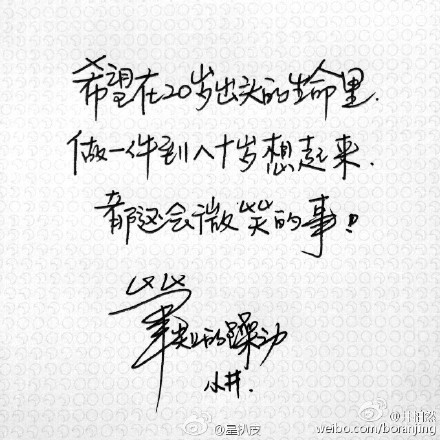 希望在20岁出头的生命里.
做一件到八十岁想起来.
都还会微笑的事!!
筆尖的躁动
小井.
@星扒皮
@井柏然
weibo.com/boranjing